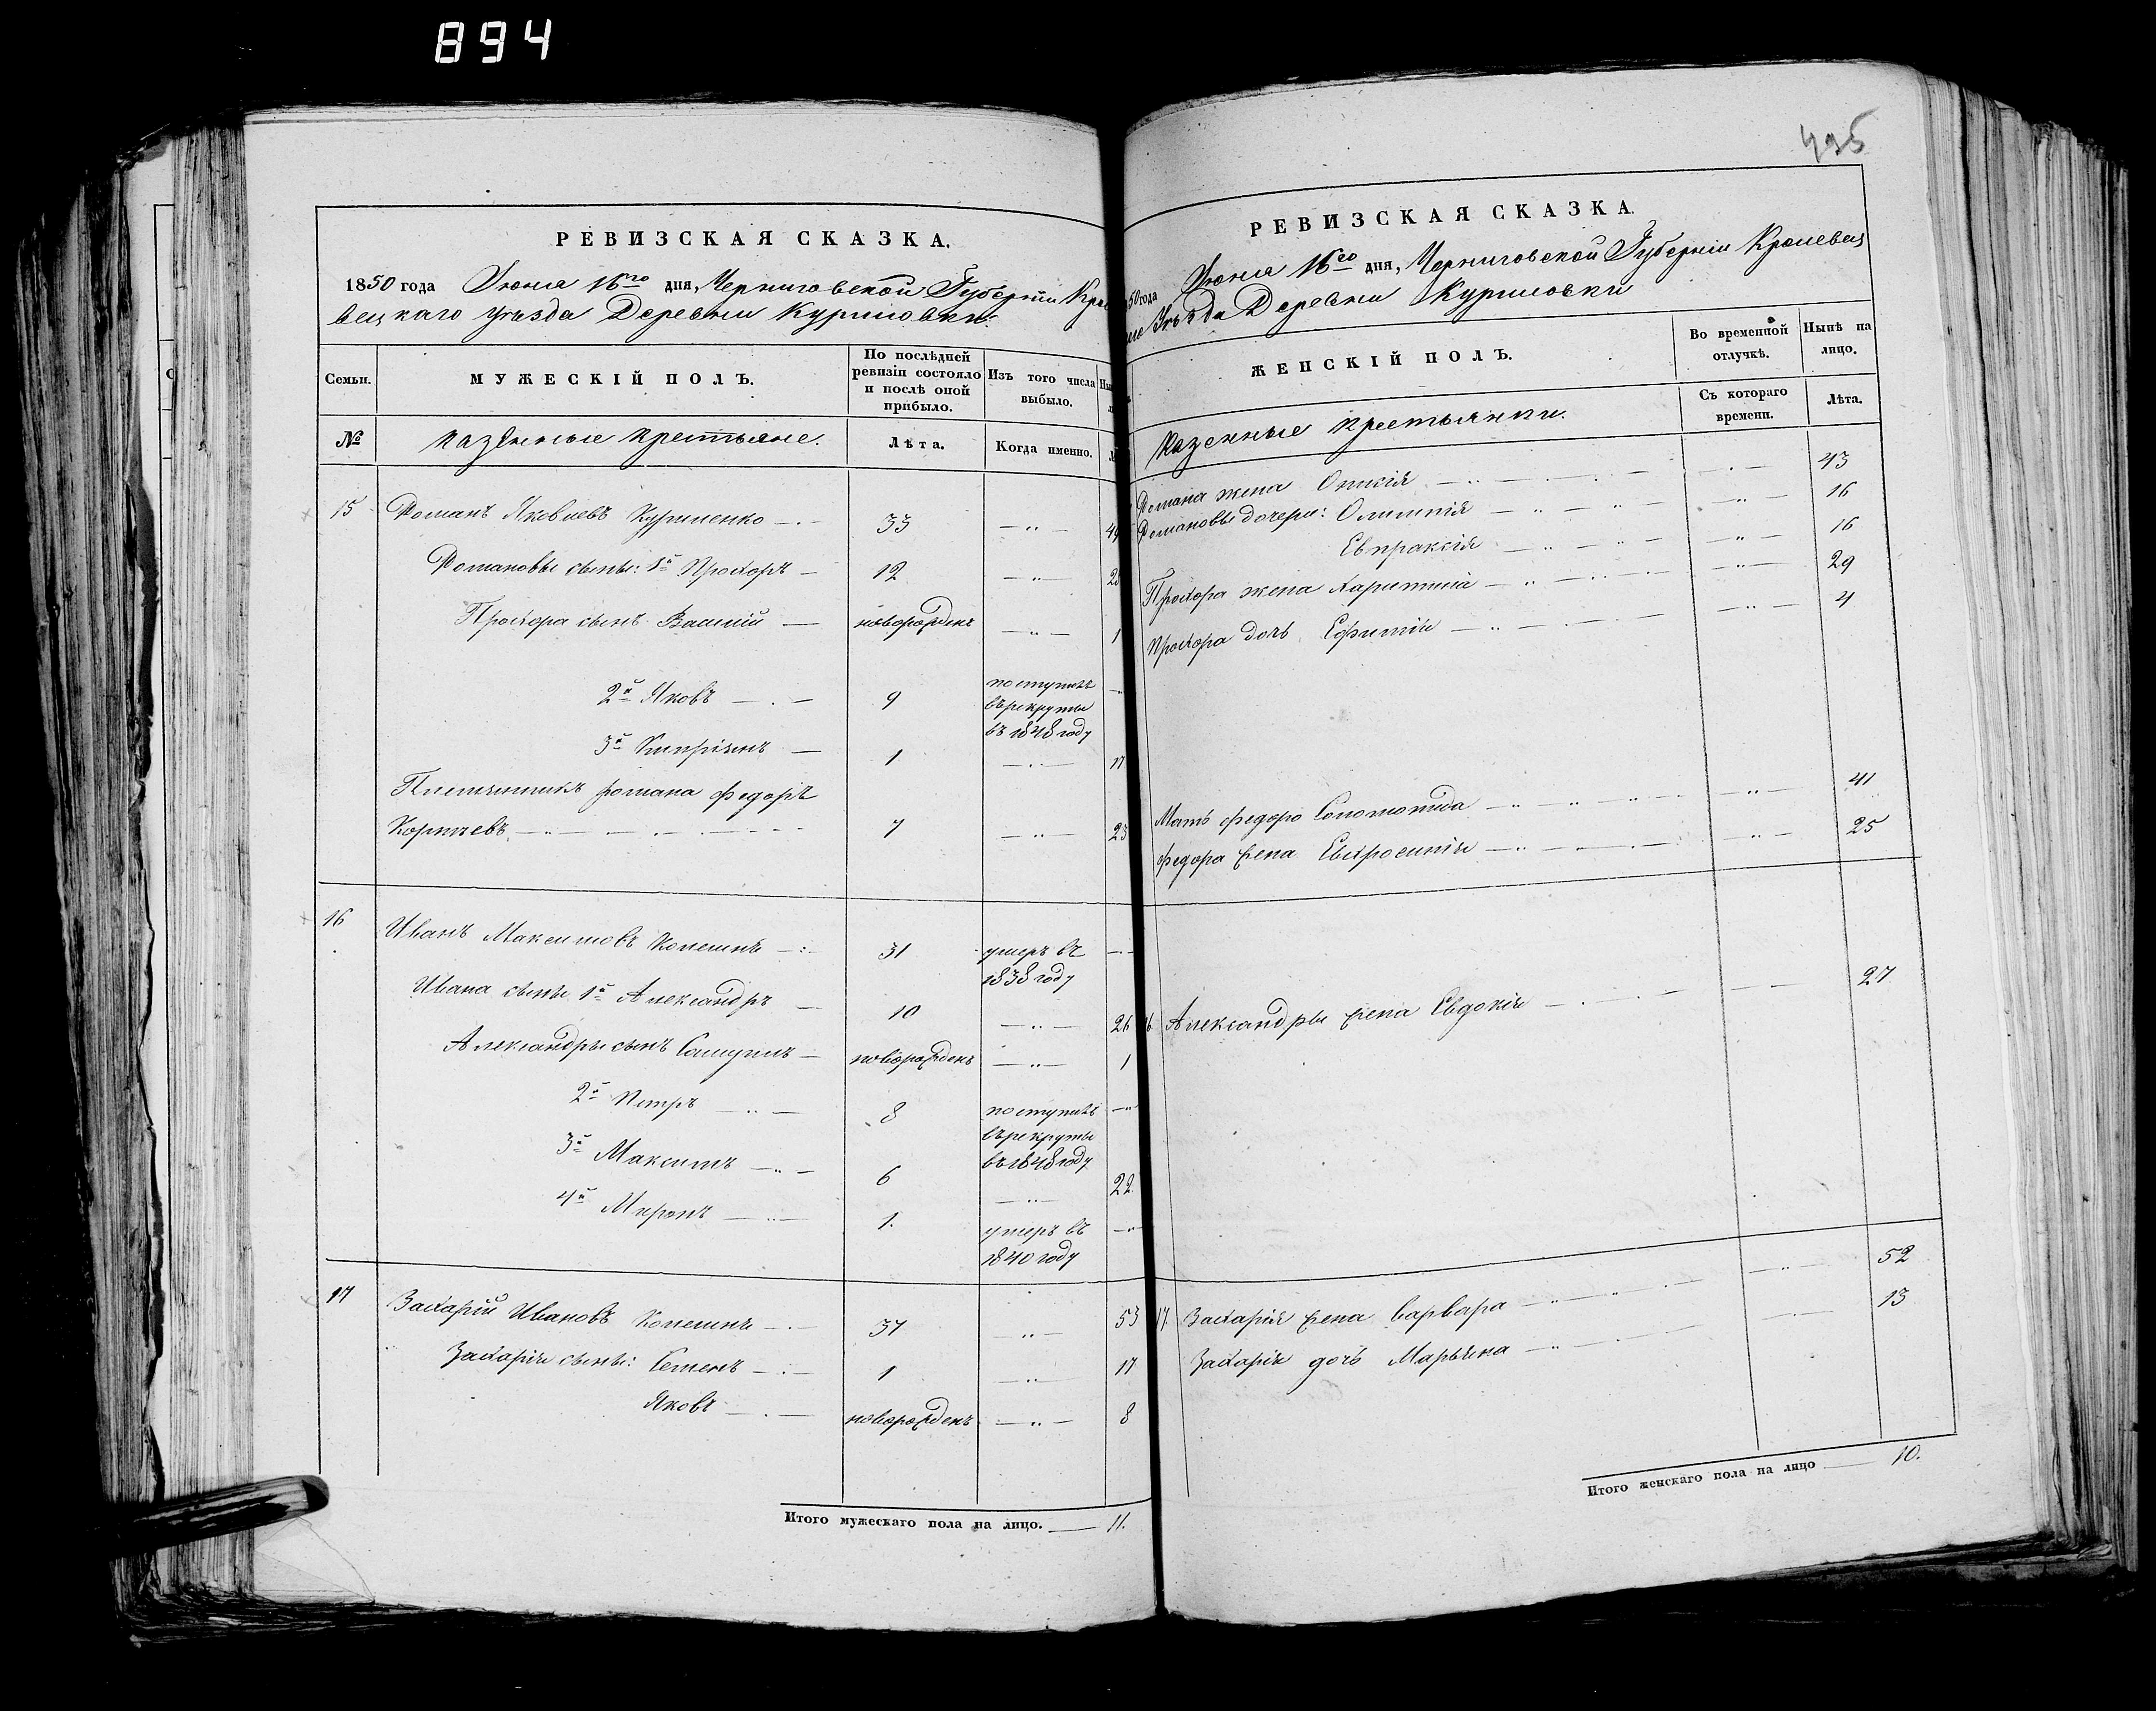 894
495
РЕВИЗСКАЯ СКАЗКА.
1850 года Іюня 16го дня, Черниговской Губерніи Кроле
вецкаго уѣзда Деревни Куриловки
Семьи.
МУЖЕСКІЙ ПОЛЪ.
По послѣдней ревизіи состояло и послѣ оной прибыло.
Изъ того числа выбыло.
№
казенные крестьяне.
Лѣта.
Когда именно.
15 Романъ Яковлевъ Куриленко 33 — " — 49
Романовы сыны: 1й Прохоръ 12 — " — 28
Прохора сынъ Василій новорожденъ — " — 1
2й Яковъ 9 поступилъ
въ рекруты
въ 1848 году
3й Кипріянъ 1 — " — 17
Племянникъ романа федоръ
Корнѣевъ 7 — " — 23
16 Иванъ Максимовъ 31 умеръ въ
1838 году
Ивана сыны 1й Александръ 10 — " — 26
Александры сынъ Самуилъ новорожденъ — " — 1
2й Петръ 8 поступилъ
въ рекруты
въ 1848 году
3й Максимъ 6 — " — 22
4й Миронъ 1. умеръ въ
1840 году
17 Захарій Ивановъ 37 " — 53
Захарія сыны: Семенъ 1 — " — 17
Яковъ новорожденъ — " — 8
Итого мужескаго пола на лицо. 11.
РЕВИЗСКАЯ СКАЗКА.
50 года Іюня 16го дня, Черниговской Губерніи Кролевец
Уѣзда Деревни Куриловки
ЖЕНСКІЙ ПОЛЪ.
Во временной отлучкѣ.
Нынѣ на лицо.
Казенные крестьянки.
Съ котораго времени.
Лѣта.
Романа жена 43
Романовы дочери: Олимпія — " — 16
Евпраксія — " — 16
Прохора жена Харитина — " — 29
Прохора дочь Ефимія — " — 4
Мать федора Соломонида — " — 41
федора жена Евфросинія — " — 25
16. Александры жена Евдокія 27
17. Захарія жена варвара — " — 52
Захарія дочь Марьяна 13
Итого женскаго пола на лицо 10.